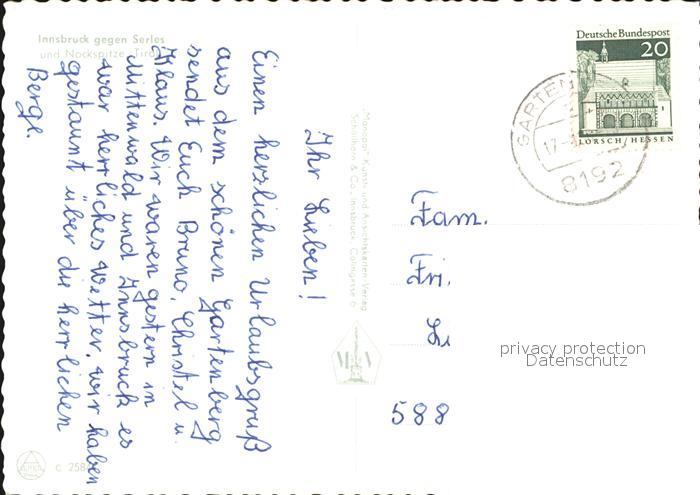 Innsbruck gegen Serles
und Nockspitze, Tirol
Ihr Lieben!
Einen herzlichen Urlaubsgruß
aus dem schönen Gartenberg
sendet Euch Bruno, Christel u.
Klaus. Wir waren gestern in
Mittenwald und Innsbruck es
war herrliches Wetter. Wir haben
gestaunt über die herrlichen
Berge.
Kunst- und Ansichtskarten-Verlag
& Co., Innsbruck,
Deutsche Bundespost
20
LORSCH/HESSEN
8192
Fam.
Fri.
Li
588
privacy protection
Datenschutz
C 258